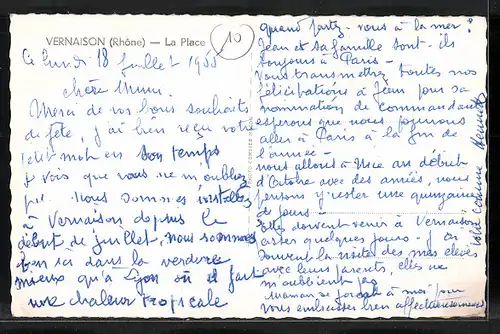 VERNAISON (Rhône) — La Place
10
Ce lundi 18 Juillet 1955
Chère Mimi.
Merci de vos bons souhaits
de fête, j'ai bien reçu votre
petit mot en son temps
Je vois que vous ne m'oubliez
pas. Nous sommes installés
à Vernaison depuis le
début de juillet, nous sommes
bien ici dans la verdure
mieux qu'à Lyon où il fait
une chaleur tropicale
quand partez-vous à la mer ?
Jean et sa famille sont-ils
toujours à Paris -
Vous transmettrez toutes nos
félicitations à Jean pour sa
nomination de commandant
espérons que nous pourrons
aller à Paris à la fin de
l'année -
nous allons à Nice au début
d'Octobre avec des amies, nous
pensons y rester une quinzaine
de jours -
doivent venir à Vernaison
passer quelques jours - J'ai
souvent la visite de mes élèves
avec leurs parents, elles ne
m'oublient pas
Maman se joint à moi pour
vous embrasser bien affectueusement